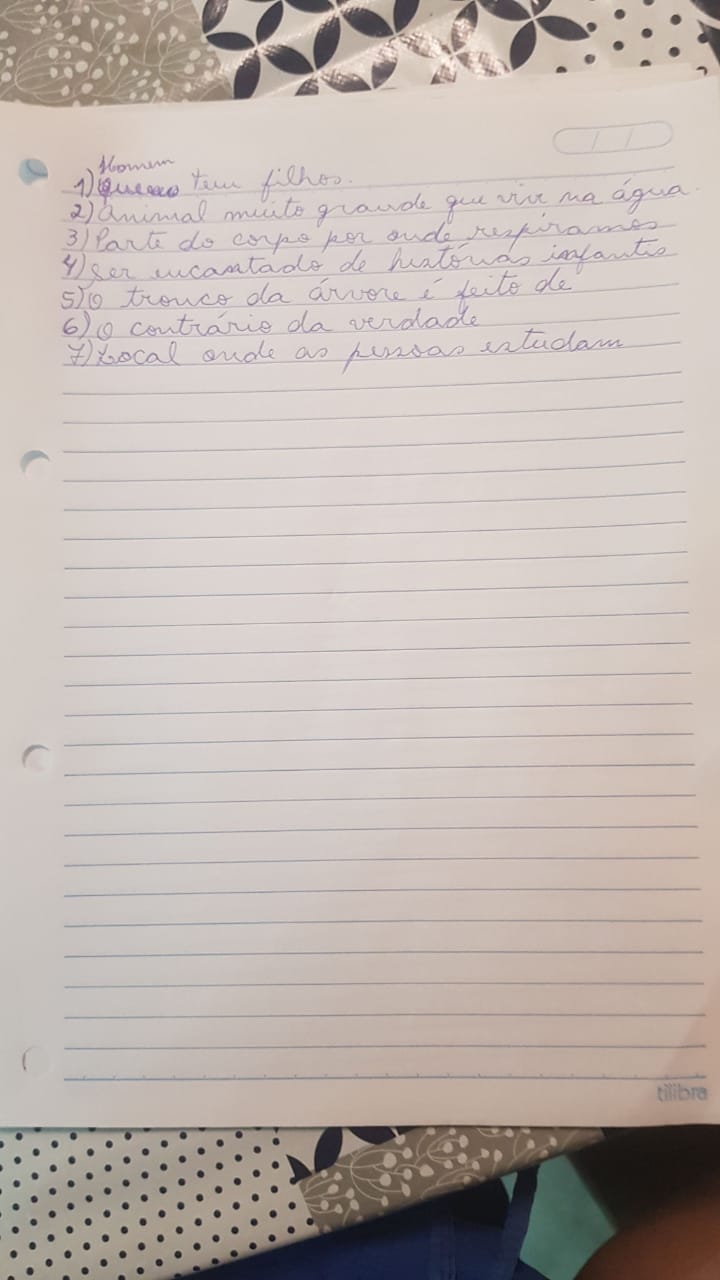 Homem
1) tem filhos.
2) Animal muito grande que vive na água.
3) Parte do corpo por onde respiramos
4) Ser encantado de histórias infantis
5) O tronco da árvore é feito de
6) O contrário da verdade
7) Local onde as pessoas estudam
tilibra